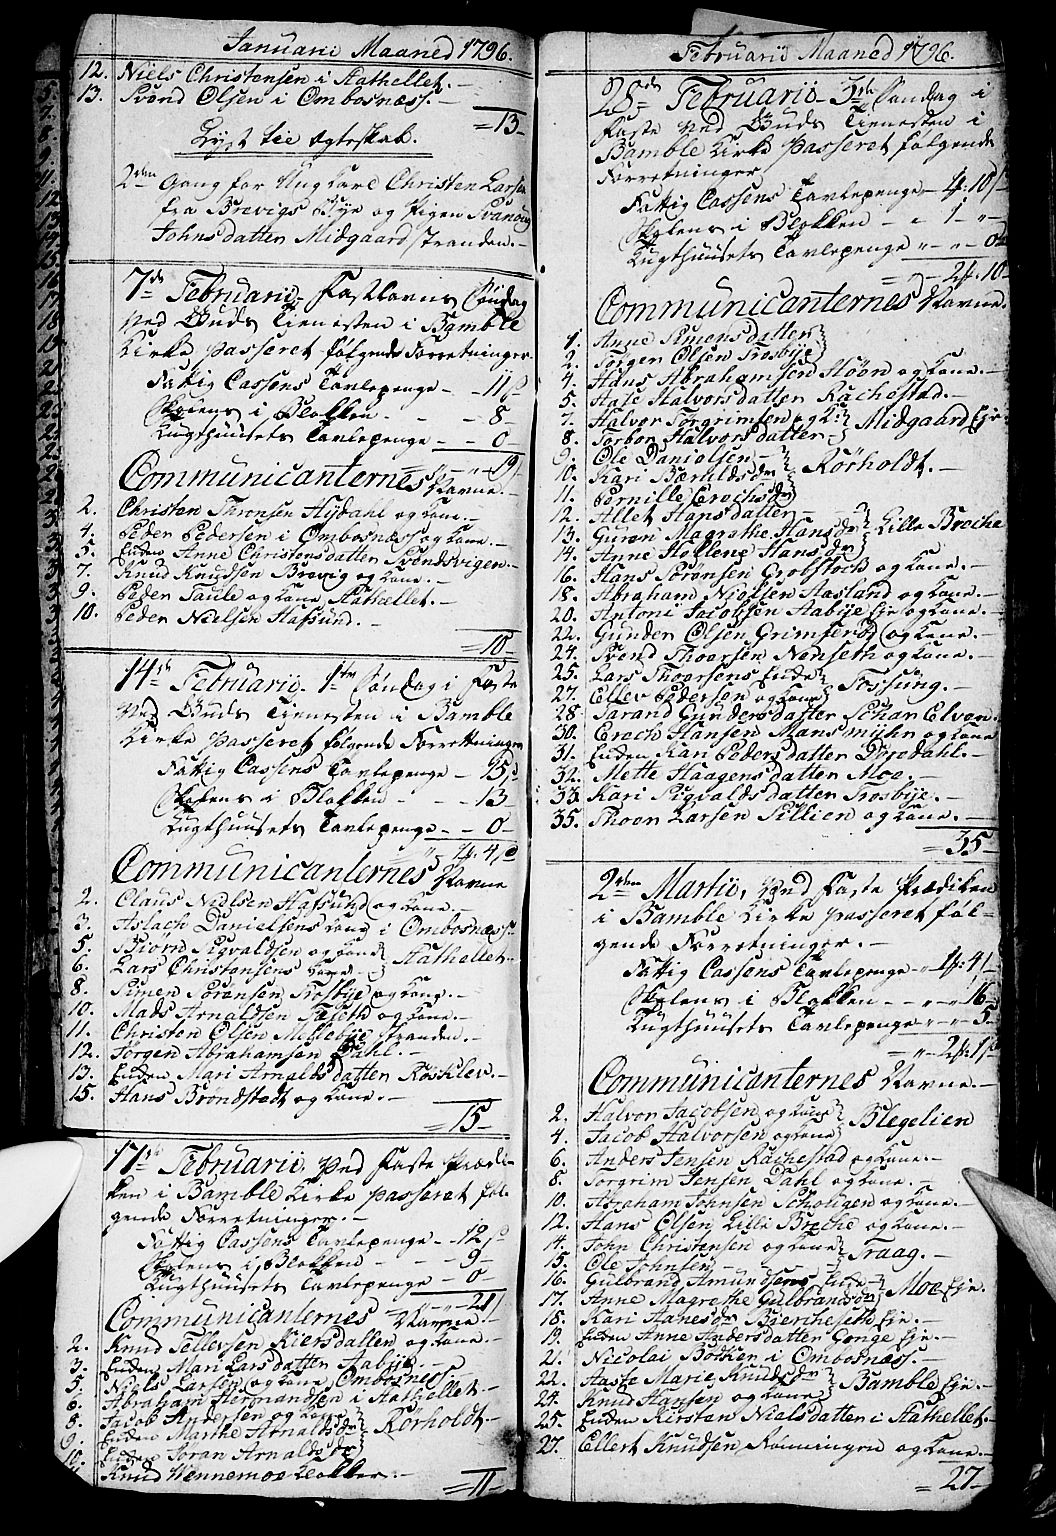 Januarii Maaned 1796.
12. Niels Christensen i Stathellet. –
13. Svend Olsen i Ombosnæss. –
= 13 –
Lyst til Ægteskab.
2den Gang for Ungkarl Christen Larsen
fra Brevigs Bye og Pigen Svanoug
Johnsdatter Midgaard stranden. –
7de Februarii, Fastlavns Søndag
Ved Guds Tienesten i Bamble
Kirke passeret følgende Forretninger.
Fattig Cassens Tavlepenge – – 11 s
Skolens i Blokken – – – 8 –
Tugthuusets Tavlepenge – – 0 –
= " – " – 19
Communicanternes Navne. –
2. Christen Thronsen Hydahl og kone. –
4. Peder Pedersen i Ombosnæss og kone. –
5. Enken Anne Christensdatter Svendsvigen. –
7. Knud Knudsen Brevig og kone. –
9. Peder Taule og kone Stathellet. –
10. Peder Nielsen Hafsund. –
= 10 –
14de Februario. 1ste Søndag i Faste
Ved Guds Tienesten i Bamble
Kirke passeret følgende Forrettninger
Fattig Cassens Tavlepenge – 15 s
Skolens i Blokken – – 13 –
Tugthuusets Tavlepenge – – 0 –
Communicanternes Navne
2. Claus Nielsen Hafsund og kone. –
3. Aslach Danielsens kone i Ombosnæss
5. Biørn Sigvaldsen og kone
6. Lars Christensens kone – Stathellet. –
8. Simen Sørensen Trosbye og kone. –
10. Mads Arnoldsen Fæseth og kone. –
11. Christen Olsen Millebye stranden. –
12. Jørgen Abrahamsen Dahl. –
13. Enken Mari Arnolds datter Røsklev. –
15. Hans Brondstedt og kone. –
= 15 –
17de Februarii, Ved Faste Prædi-
ken i Bamble Kirke passeret føl-
gende Forretninger. –
Fattig Cassens Tavlepenge – 12 s
Skolens i Blokken – – 9 –
Tugthuusets Tavlepenge – 0 –
= " – " – 21
Communicanternes Navne
2. Knud Tellevsen Kiersdallen og kone. –
3. Enken Mari Larsdatter Aabye. –
5. Niels Larsen og kone Ombosnæss. –
6. Abraham Hermandsen i Stathellet. –
8. Jacob Andersen og kone
9. Enken Marthe Arnoldsdr Rørholdt. –
10. Enken Joran Arnoldsdr
Knud Vennemoe Klokker. –
= 11 –
Februarii Maaned 1796.
28de Februario 3die Søndag i
Faste Ved Guds Tienesten i
Bamble Kirke passeret følgende
Forretninger
Fattig Cassens Tavlepenge – 4: 10 s
Skolens i Blokken – – " 1 – " –
Tugthuusets Tavlepenge " – " – 0
Communicanternes Navne.
1. Anne Simensdatter
2. Torger Olsen Trosbye
4. Hans Abrahamsen Höen og kone. –
5. Aase Halvorsdatter Rachestad. –
7. Halvor Torgrimsen og K: Midgaard Eje
8. Torbor Halvors datter
9. Ole Danielsen –
10. Kari Bærulds dr Rørholdt. –
11. Pernille Erochs dr
12. Allet Hans datter –
13. Guron Magrethe Hans dr Lille Breche
14. Anne Hellene Hans dr
16. Hans Sørensen Grobstoch og kone. –
18. Abraham Nielsen Aasland og kone. –
20. Antoni Jacobsen Aabye Eje og kone. –
22. Gunder Olsen Grimserød og kone. –
24. Svend Thoersen Nenseth og kone. –
25. Lars Thoersens Enke
27. Ellev Pedersen og kone Fossing. –
28. Sarand Gundersdatter Schar Elven
30. Erech Hansen Mansmyhr og kone
31. Enken Kari Peders datter Dyredahl. –
32. Mette Haagens datter Moe. –
33. Kari Sigvalds datter Trosbye. –
35. Thoer Larsen Sillien og kone. –
= 35 –
2den Martii, Ved Faste Prædiken
i Bamble Kirke passeret føl-
gende Forretninger. –
Fattig Cassens Tavlepenge
Skolens i Blokken – – " – " 16 –
Tugthuusets Tavlepenge – " – " – 5 –
Communicanternes Navne. –
2. Halvor Jacobsen og kone
4. Jacob Halvorsen og kone Blegelien
6. Anders Jensen Rachestad og kone. –
8. Torgrim Jensen Dahl og kone. –
10. Abraham Johnsen Schougen og kone. –
12. Hans Olsen Lille Breche og kone. –
14. John Christensen og kone
15. Ole Johnsen Traag. –
16. Gulbrand Amundsens Enke
17. Anne Magrethe Gulbrandsdr Moe Eje. –
18. Kari Hansdr Biercheseth Eje. –
19. Enken Anne Anders datter Gonge Eje. –
21. Nicolai Bødker i Ombosnæss. –
22. Aaste Marie Knuds dr
24. Knud Hansen og kone Bamble Eje. –
25. Enken Kirsten Nielsdatter i Stathellet. –
27. Ellert Knudsen Rønningen og kone. –
= 27 –